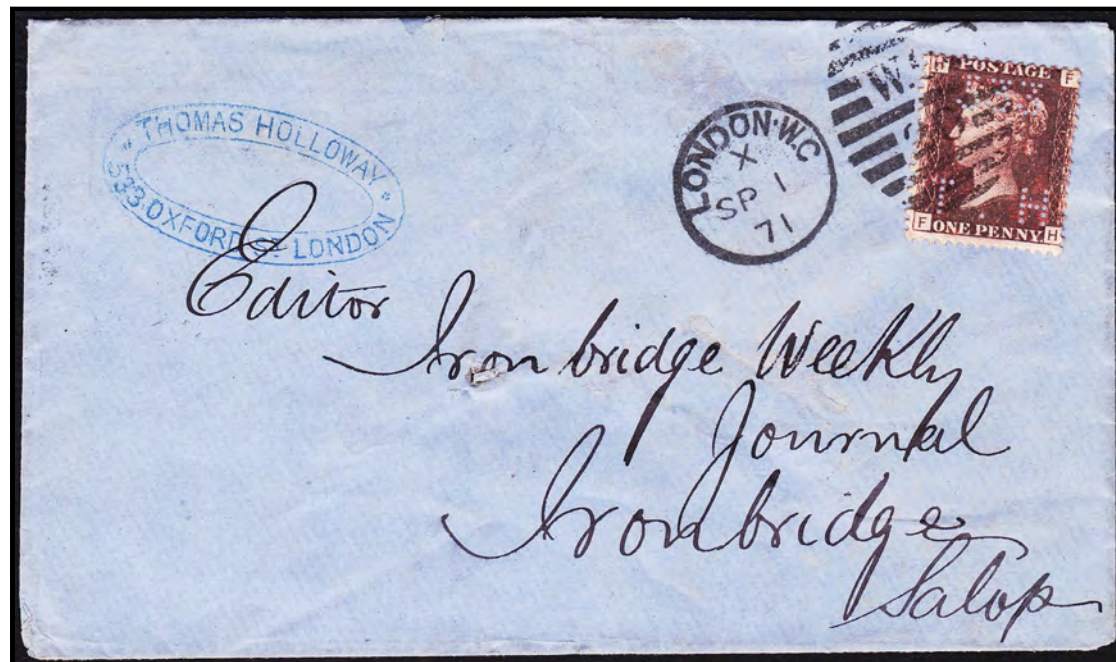 THOMAS HOLLOWAY
533. OXFORD ST LONDON
LONDON·W.C
X
SP 1
71
W.C
H POSTAGE F
F ONE PENNY H
Editor
Ironbridge Weekly
Journal
Ironbridge
Salop